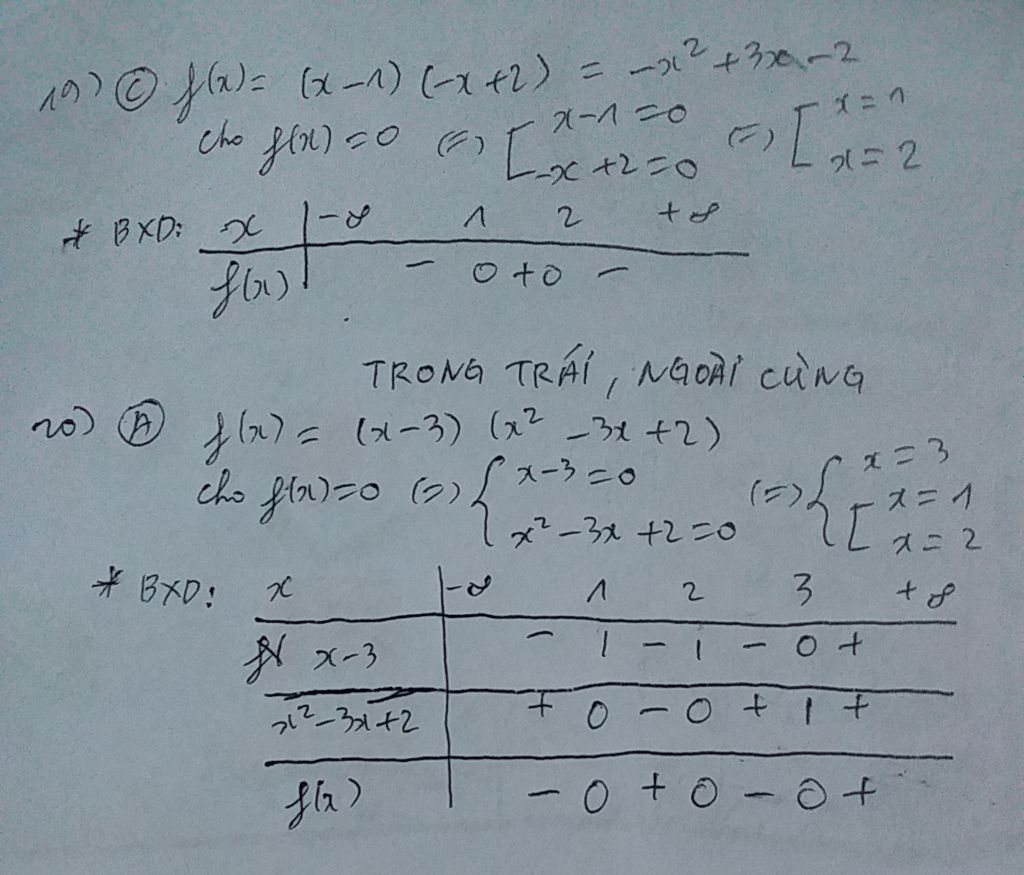 19) Ⓒ f(x) = (x-1) (-x+2) = -x² + 3x - 2
cho f(x) = 0 (=) [ x-1 = 0 (=) [ x = 1
-x + 2 = 0 x = 2
* BXD: x | -∞ 1 2 +∞
f(x) | - 0 + 0 -
TRONG TRÁI, NGOÀI CÙNG
20) Ⓐ f(x) = (x-3) (x² - 3x + 2)
cho f(x) = 0 (=) { x-3 = 0 (=) { x = 3
x² - 3x + 2 = 0 [ x = 1
x = 2
* BXD: x | -∞ 1 2 3 +∞
x-3 | - | - | - 0 +
x² - 3x + 2 | + 0 - 0 + | +
f(x) | - 0 + 0 - 0 +